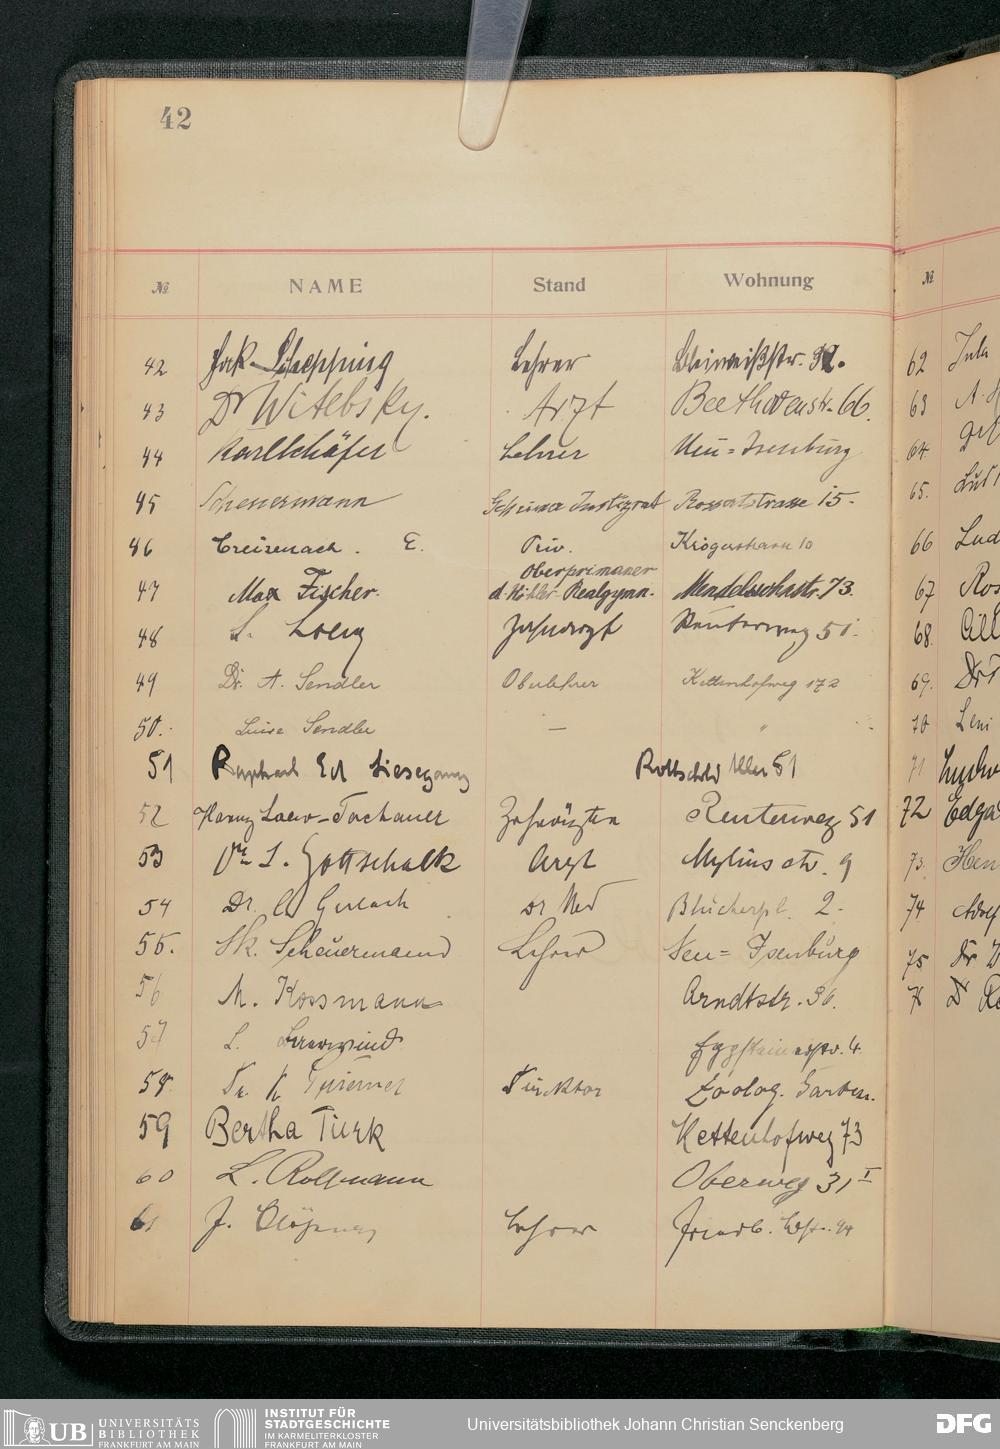 42
№ NAME Stand Wohnung
42 Jak. Schepping Lehrer
43 Dr Witebsky. Arzt Beethovenstr. 66.
44 Karl Schäfer Lehrer Neu=Isenburg
45 Scheuermann Justizrat Rossertstrasse 15.
46 Creizenach. E. Priv. Krögerstrasse 10
Oberprimaner
47 Max Fischer. Realgymn. Mendelssohnstr. 73.
48 Zahnarzt Reuterweg 51.
49 Dr. A. Sendler Oberlehrer Kettenhofweg 172
50. Luise Sendler — "
51 Raphael Ed Liesegang Rothschild Allee 51
52 Loew-Tachauer Zahnärztin Reuterweg 51
53 Dr. S. Gottschalk Arzt Myliusstr. 9
54 Dr. Gerlach Dr Med Blücherpl. 2.
55. Scheuermann Lehrer Neu=Isenburg
56 M. Kossmann Arndtstr. 36.
57 L. Eppsteinerstr. 4.
58. Dr. K. Priemel Direktor Zoolog. Garten.
59 Bertha Türk Kettenhofweg 73
60 L. Oberweg 31 I
61 J. Lehrer Friedb.
№
62 Jula
63 A.
64.
65.
66 Lud
67 Ros
68.
69. Dr
70 Leni
71
72 Edga
73.
74 Adolf
75 Dr
76 Dr
UB UNIVERSITÄTS
BIBLIOTHEK
FRANKFURT AM MAIN
INSTITUT FÜR
STADTGESCHICHTE
IM KARMELITERKLOSTER
FRANKFURT AM MAIN
Universitätsbibliothek Johann Christian Senckenberg
DFG